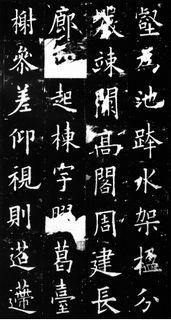 壑為池跨水架楹分
巖竦闕高閣周建長
廊起棟宇葛臺
榭參差仰視則迢遰